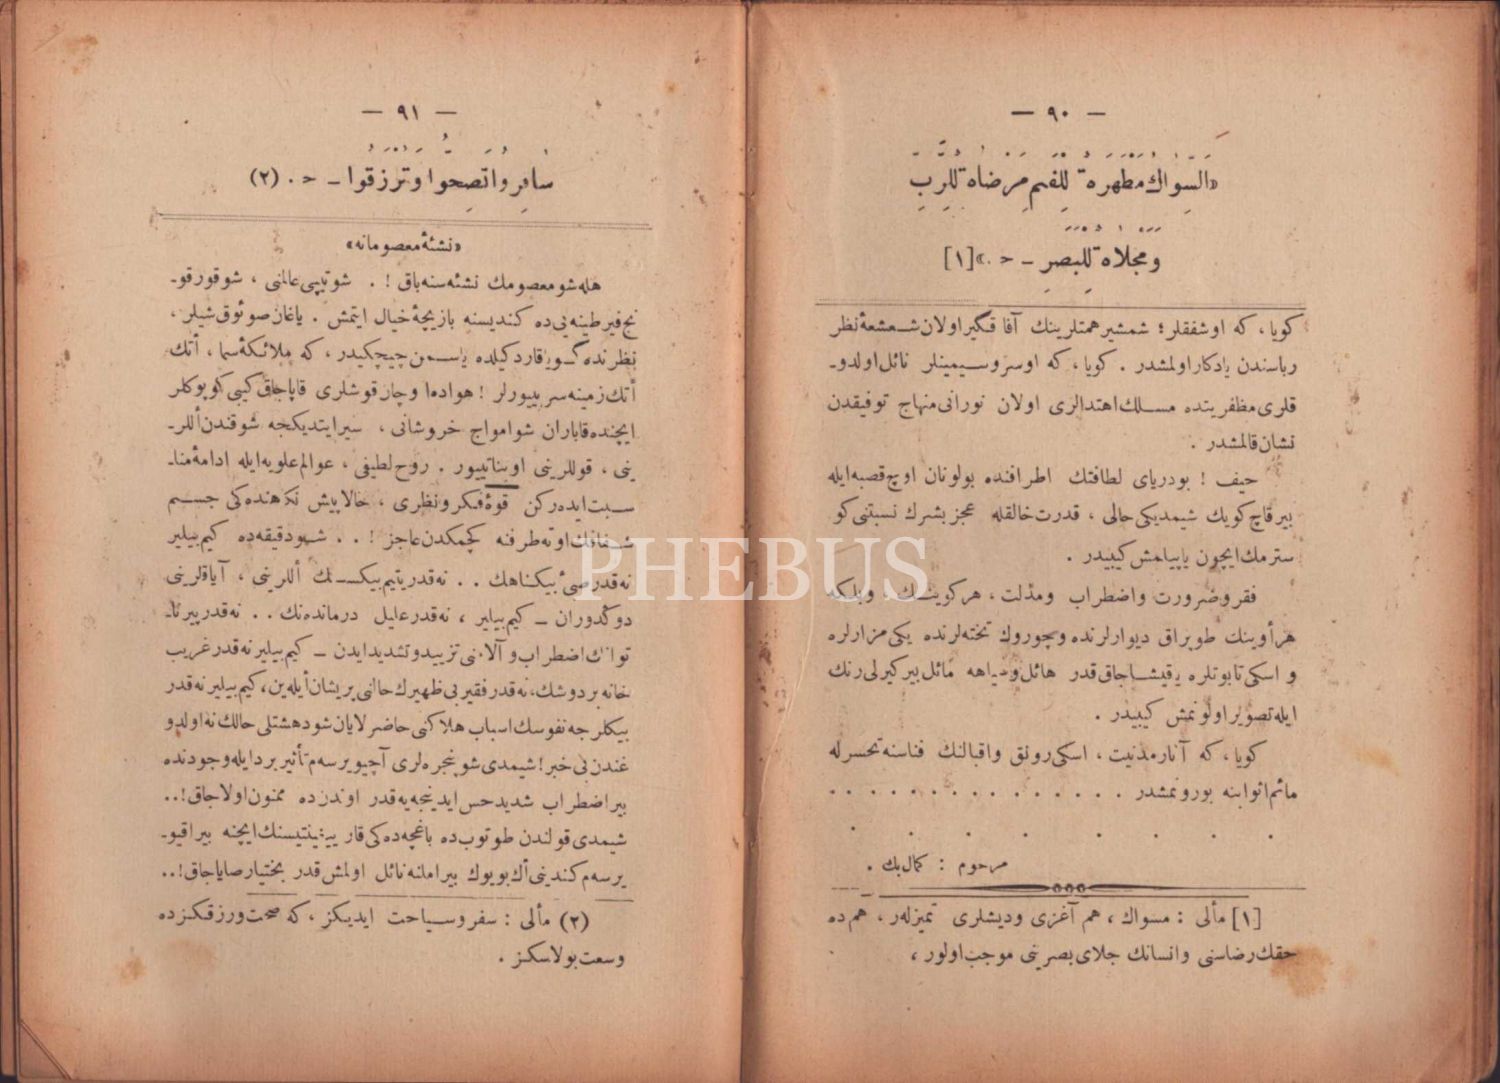 — ٩٠ —
«السِّوَاكُ مَطْهَرَةٌ لِلْفَمِ مَرْضَاةٌ لِلرَّبِّ
وَمَجْلَاةٌ لِلْبَصَرِ ـ ح ـ .» [١]
كویا، كه اوشفقلر؛ شمشیرهمتلرینك آفاقكیراولان شـعشعۀ نظر
رباسندن یادكاراولمشدر . كویا، كه اوسروسیمینلر نائل اولدوـ
قلری مظفریتده مسـلك اهتدالری اولان نورانی منهاج توفیقدن
نشان قالمشدر .
حیف ! بودریای لطافتك اطرافنده بولونان اوچ قصبه ایله
بیرقاچ كویك شیمدیكی حالی ، قدرت خالقله عجز بشرك نسبتنی كو
سترمك ایچون یاپیلمش كیبیدر .
فقروضرورت واضطراب ومذلت ، هركوینك ، وبلكه
هرأوینك طوپراق دیوارلرنده وچوروك تخته لرنده یكی مزارلره
و اسكی تابوتلره یقیشـاجاق قدر هائل وسیاهه مائل بیركیرلی رنك
ایله تصویراولونمش كیبیدر .
كویا، كه آثارمدنیت ، اسكی رونق واقبالنك فناسنه تحسرله
مائم اثوابنه بورونمشدر . . . . . . . . . . . . . .
. . . . . . . .
مرحوم : كمال بك .
[١] مألی : مسواك ، هم آغزی ودیشلری تمیزلەر ، هم ده
حقك رضاسنی وانسانك جلای بصرینی موجب اولور ،
— ٩١ —
سَافِرُوا تَصِحُّوا وَتُرْزَقُوا ـ ح . (٢)
«نشئۀ معصومانه»
هله شو معصومك نشئه سنه باق ! . شو تیپی عالمنی ، شو قورقوـ
نج فیرطینه یی ده كندیسنه بازیچۀ خیال ایتمش . یاغان صوئوق شیلر ،
نظرنده گـویا قاردكیلده یاسـمن چیچكیدر، كه ملائـكۀ سما ، أتك
أتك زمینه سرپیورلر ! هواده اوچار قوشلری قاپاجاق كیبی كوپوكلر
ایچنده قاباران شوامواج خروشانی ، سیرایتدیكجه شوقندن أللرـ
ینی ، قوللرینی اویناتییور . روح لطیفی ، عوالم علویه ایله ادامۀ مناـ
سـبت ایدەركن قوۀ فكرونظری ، حالا پیش نكهنده كی جسـم
شـفافك اوته طرفنه كچمكدن عاجز ! . . شـودقیقه ده كیم بیلیر
نه قدر صبیٔ بیكناهك . . نه قدر یتیم بیكسـك أللرینی ، آیاقلرینی
دوكدوران ــ كیم بیلیر ، نه قدرعلیل درماندەنك . . نه قدرپیرناـ
توانك اضطراب وآلامنی تزییدوتشدیدایدن ــ كیم بیلیر نه قدر غریب
خانه بردوشك، نه قدر فقیر بی ظهیرك حالنی پریشان أیله ین، كیم بیلیر نه قدر
بیكلرجه نفوسك اسباب هلاكنی حاضرلایان شودهشتلی حالك نه اولدو
غندن بی خبر ! شیمدی شو پنجره لری آچیویرسه م تأثیر بردایله وجودنده
بیراضطراب شدید حس ایدینجه یه قدر اوندن ده ممنون اولاجاق ! ..
شیمدی قولندن طوتوب ده باغچه ده كی قار ییغینتیسنك ایچنه بیراقیوـ
یرسه م كندینی أك بویوك بیرامانه نائل اولمش قدر بختیار صایاجاق ! ..
(٢) مألی : سفروسـیاحت ایدیـكز ، كه صحت ورزقـكزده
وسعت بولاسكـز .
PHEBUS